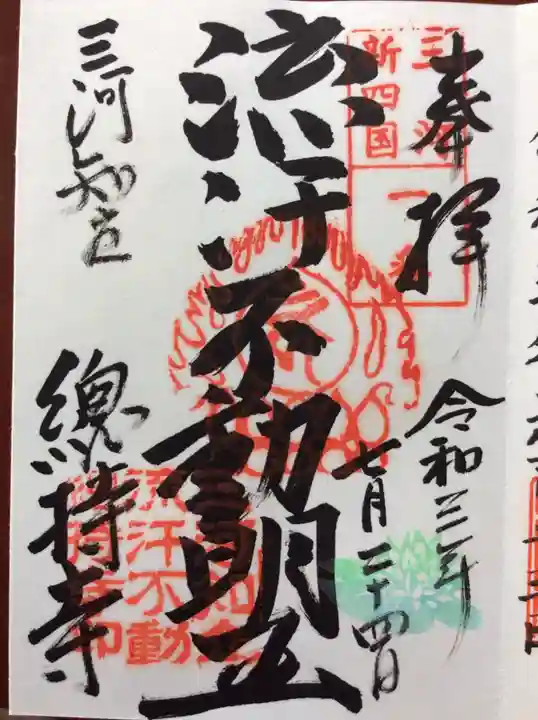 奉拝
三河
新四国
一番
令和三年
七月二十四日
流汗不動明王
三河知立
總持寺
流汗不動